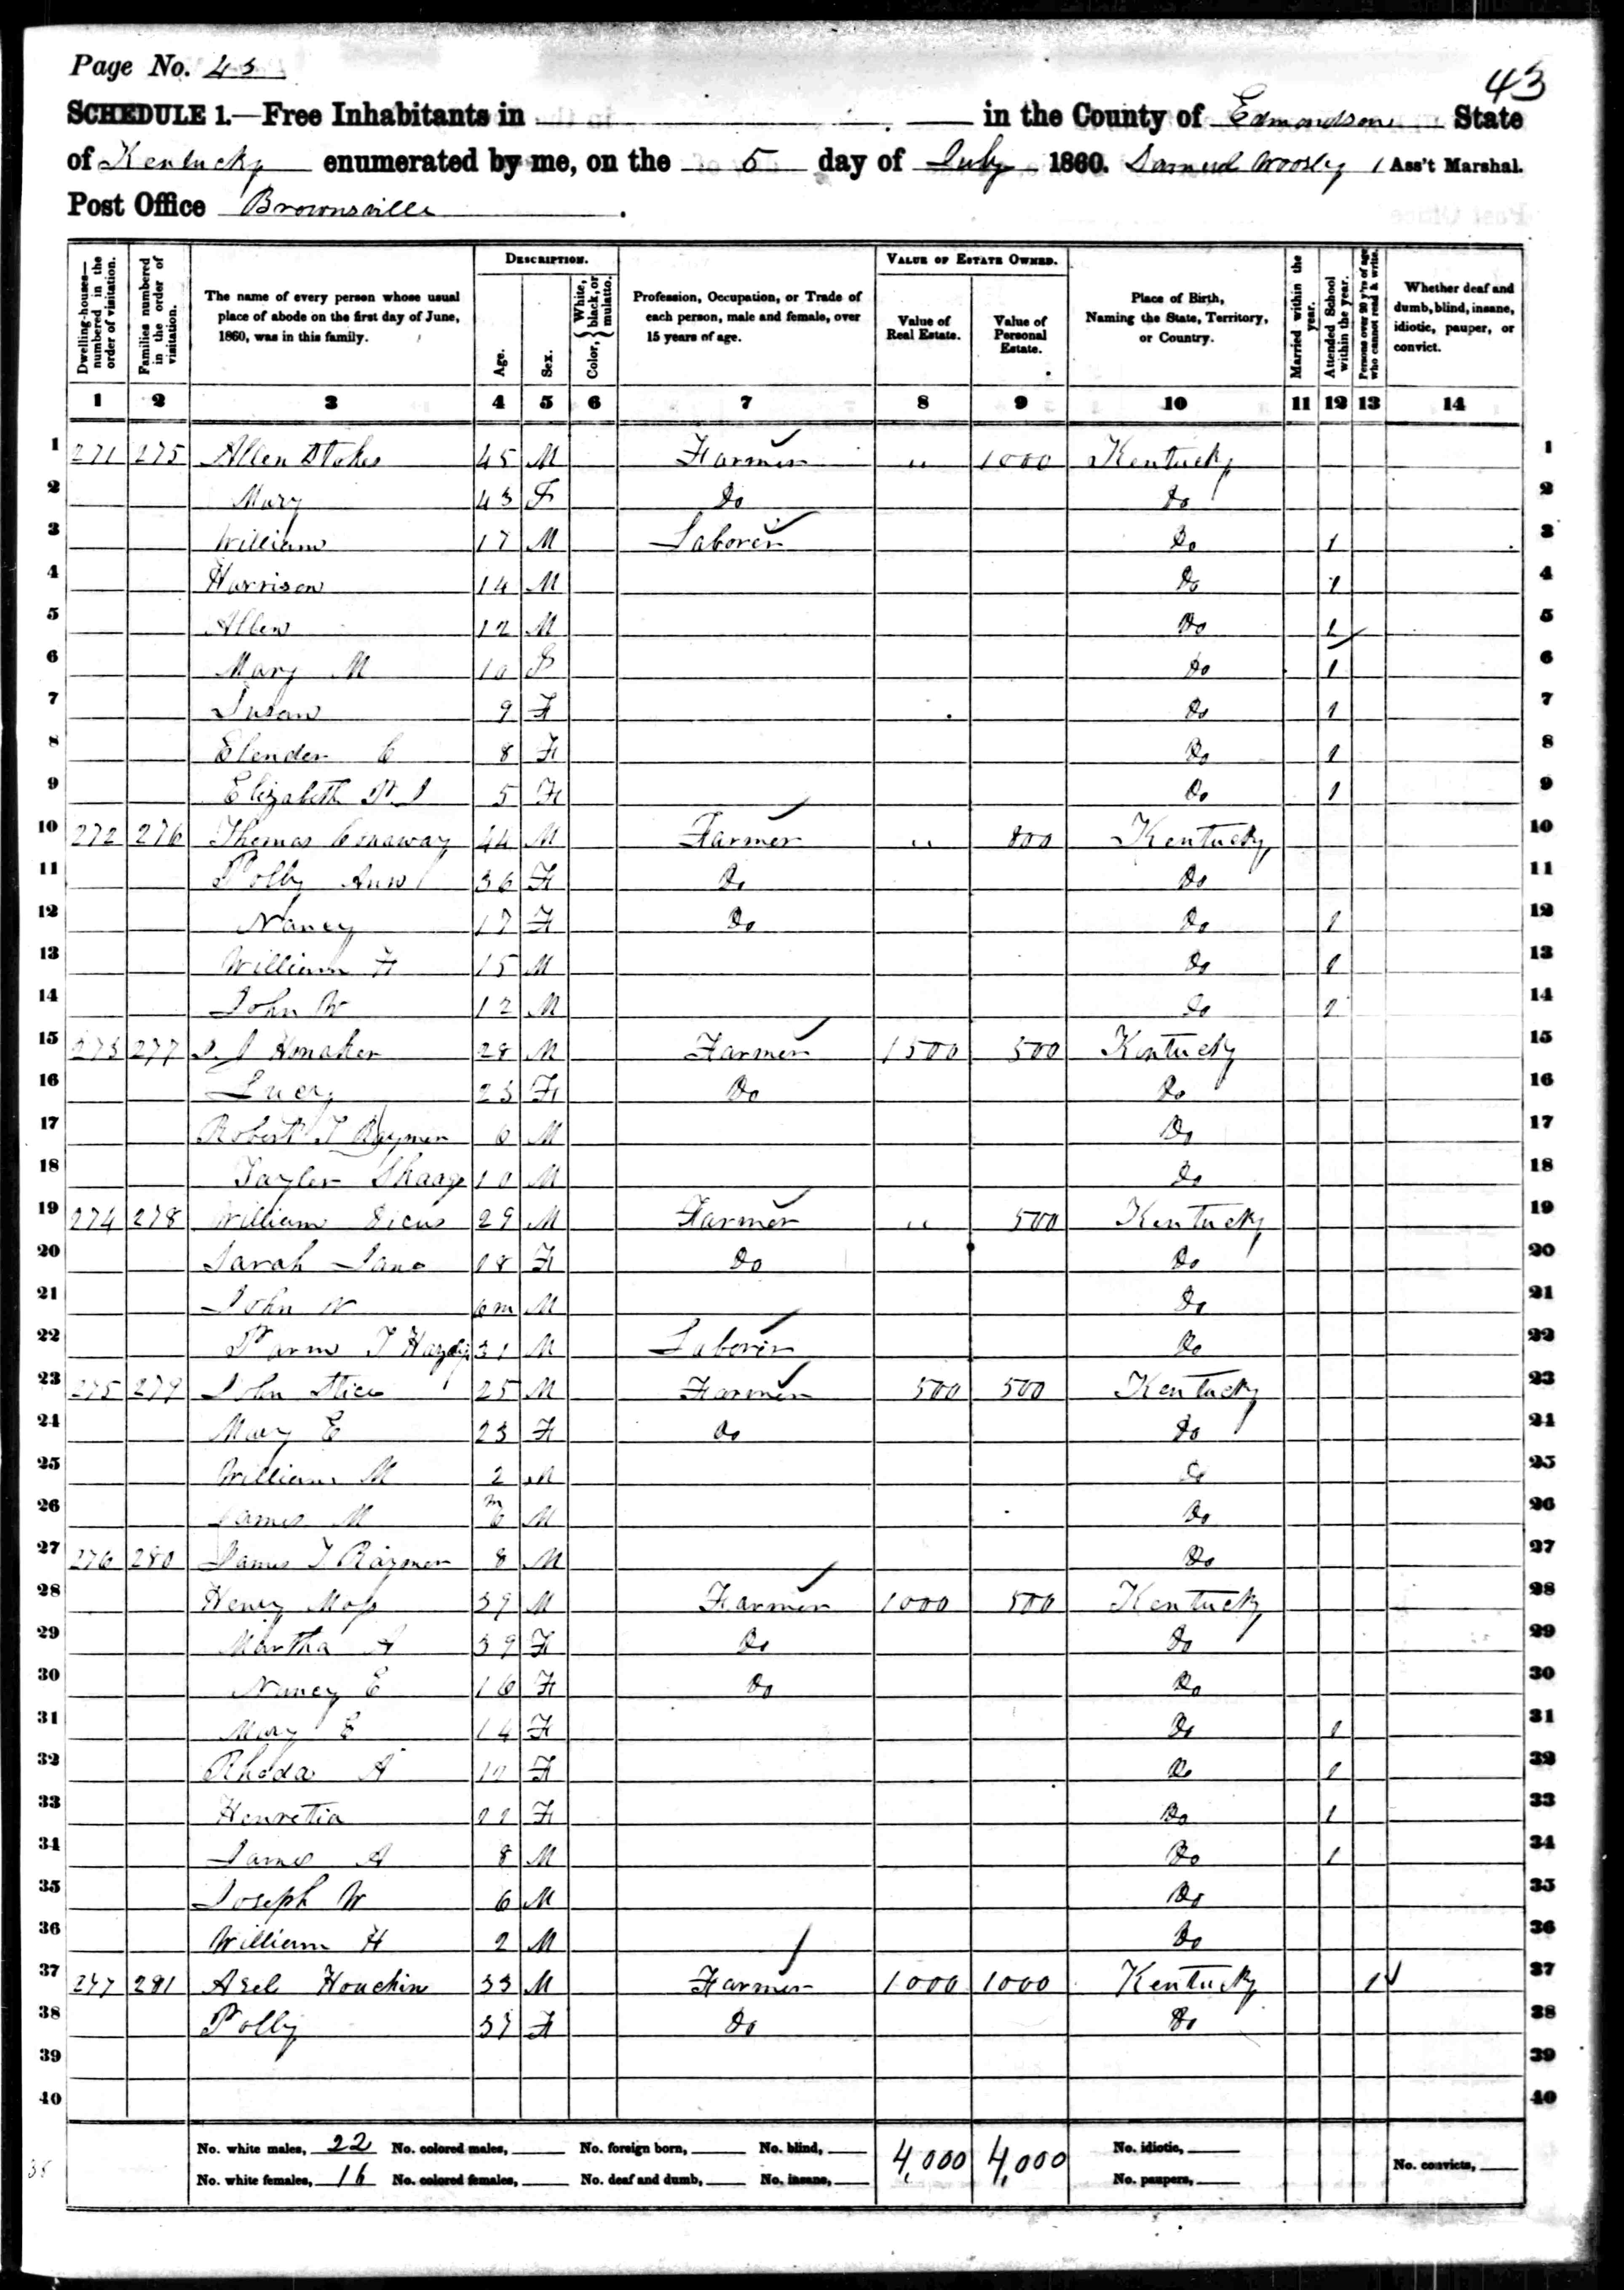 Page No. 43
43
SCHEDULE 1.—Free Inhabitants in in the County of Edmondson State
of Kentucky enumerated by me, on the 5 day of July 1860. Samuel Woosley Ass't Marshal.
Post Office Brownsville.
Dwelling-houses—numbered in the order of visitation. Families numbered in the order of visitation. The name of every person whose usual place of abode on the first day of June, 1860, was in this family. Description. Age. Sex. Color, White, black, or mulatto. Profession, Occupation, or Trade of each person, male and female, over 15 years of age. Value of Estate Owned. Value of Real Estate. Value of Personal Estate. Place of Birth, Naming the State, Territory, or Country. Married within the year. Attended School within the year. Persons over 20 y'rs of age who cannot read & write. Whether deaf and dumb, blind, insane, idiotic, pauper, or convict.
1 2 3 4 5 6 7 8 9 10 11 12 13 14
1 271 275 Allen Stokes 45 M Farmer " 1000 Kentucky 1
2 Mary 43 F Do Do 2
3 William 17 M Laborer Do 1 3
4 Harrison 14 M Do 1 4
5 Allen 12 M Do 1 5
6 Mary M 10 F Do 1 6
7 Susan 9 F Do 1 7
8 Elender C 8 F Do 1 8
9 Elizabeth 5 F Do 1 9
10 272 276 Thomas Conaway 44 M Farmer " 800 Kentucky 10
11 Polly Ann 36 F Do Do 11
12 Nancy 17 F Do Do 1 12
13 William F 15 M Do 1 13
14 John W 12 M Do 1 14
15 273 277 Honaker 28 M Farmer 1500 500 Kentucky 15
16 Lucy 23 F Do Do 16
17 Robert T Raymer 6 M Do 17
18 Tayler 10 M Do 18
19 274 278 William Dicus 29 M Farmer " 500 Kentucky 19
20 Sarah Jane 18 F Do Do 20
21 John W 6m M Do 21
22 31 M Laborer Do 22
23 275 279 John Stice 25 M Farmer 500 500 Kentucky 23
24 Mary E 23 F Do Do 24
25 William M 2 M Do 25
26 James M 6m M Do 26
27 276 280 James T Raymer 8 M Do 27
28 Henry Moss 39 M Farmer 1000 500 Kentucky 28
29 Martha A 39 F Do Do 29
30 Nancy E 16 F Do Do 30
31 Mary E 14 F Do 1 31
32 Rhoda A 12 F Do 1 32
33 Henretia 11 F Do 1 33
34 James A 8 M Do 1 34
35 Joseph W 6 M Do 35
36 William H 2 M Do 36
37 277 281 Azel Houchin 33 M Farmer 1000 1000 Kentucky 1 37
38 Polly 37 F Do Do 38
39 39
40 40
No. white males, 22 No. colored males, No. foreign born, No. blind, 4,000 4,000 No. idiotic, No. convicts,
38 No. white females, 16 No. colored females, No. deaf and dumb, No. insane, No. paupers,